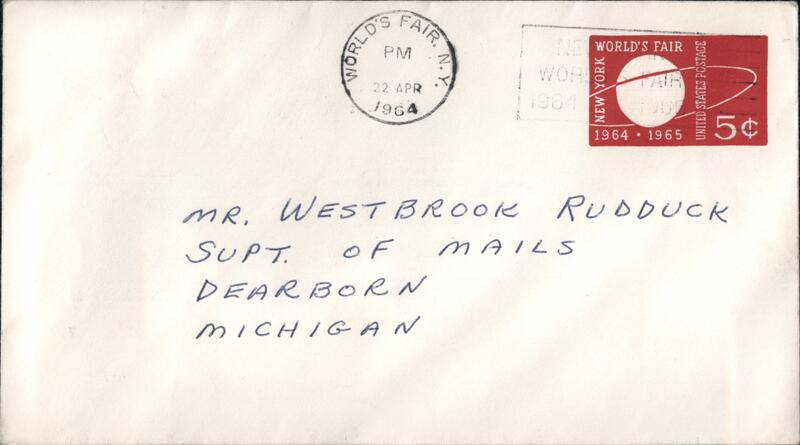 WORLD'S FAIR, N.Y.
PM
22 APR
1964
NEW YORK
WORLD'S FAIR
1964
NEW YORK
WORLD'S FAIR
UNITED STATES POSTAGE
1964 • 1965
5¢
MR. WESTBROOK RUDDUCK
SUPT. OF MAILS
DEARBORN
MICHIGAN